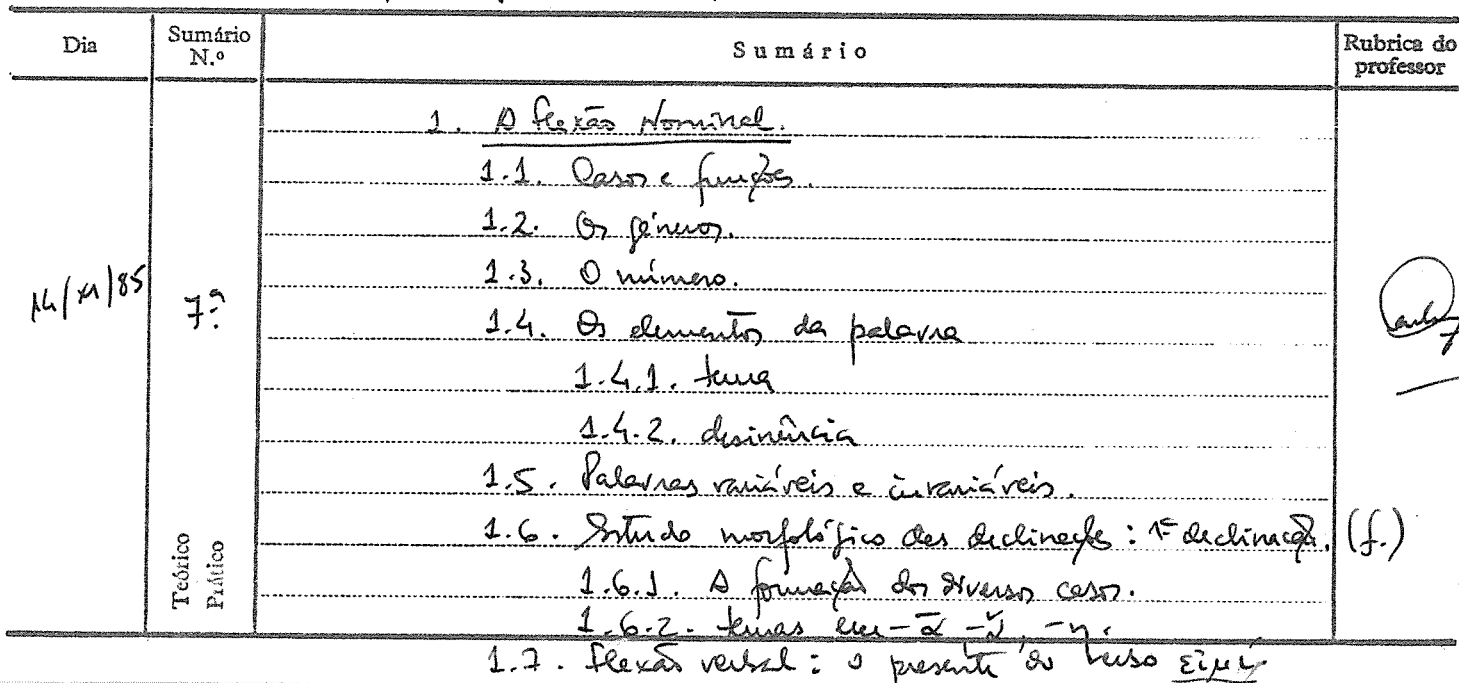 Dia Sumário N.º Sumário Rubrica do professor
1. A flexão Nominal.
1.1. Casos e funções.
1.2. Os géneros.
1.3. O número.
14/XI/85 7.ª
1.4. Os elementos da palavra
1.4.1. tema
1.4.2. desinência
1.5. Palavras variáveis e invariáveis.
Teórico Prático
1.6. Estudo morfológico das declinações: 1ª declinação. (f.)
1.6.1. A formação dos diversos casos.
1.6.2. temas em -ᾱ -ᾰ, -η.
1.7. Flexão verbal: o presente do verbo εἰμί